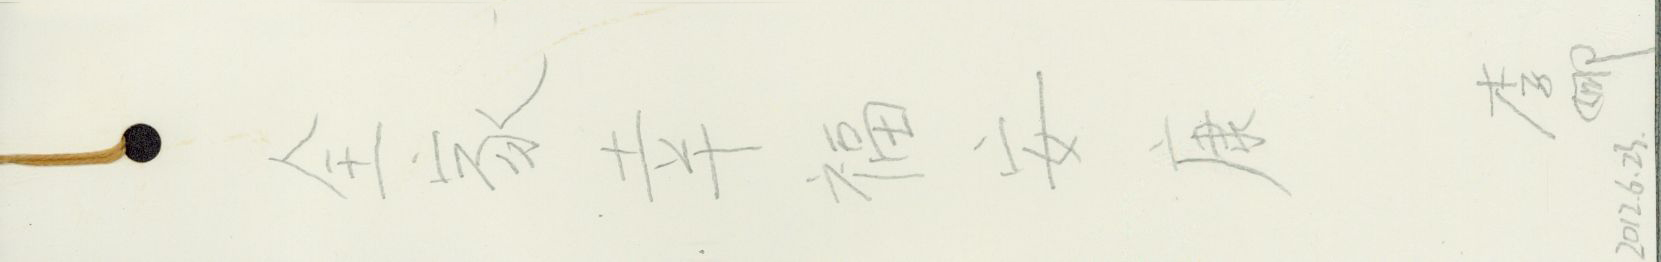 全家幸福安康
李卿
2012.6.23.